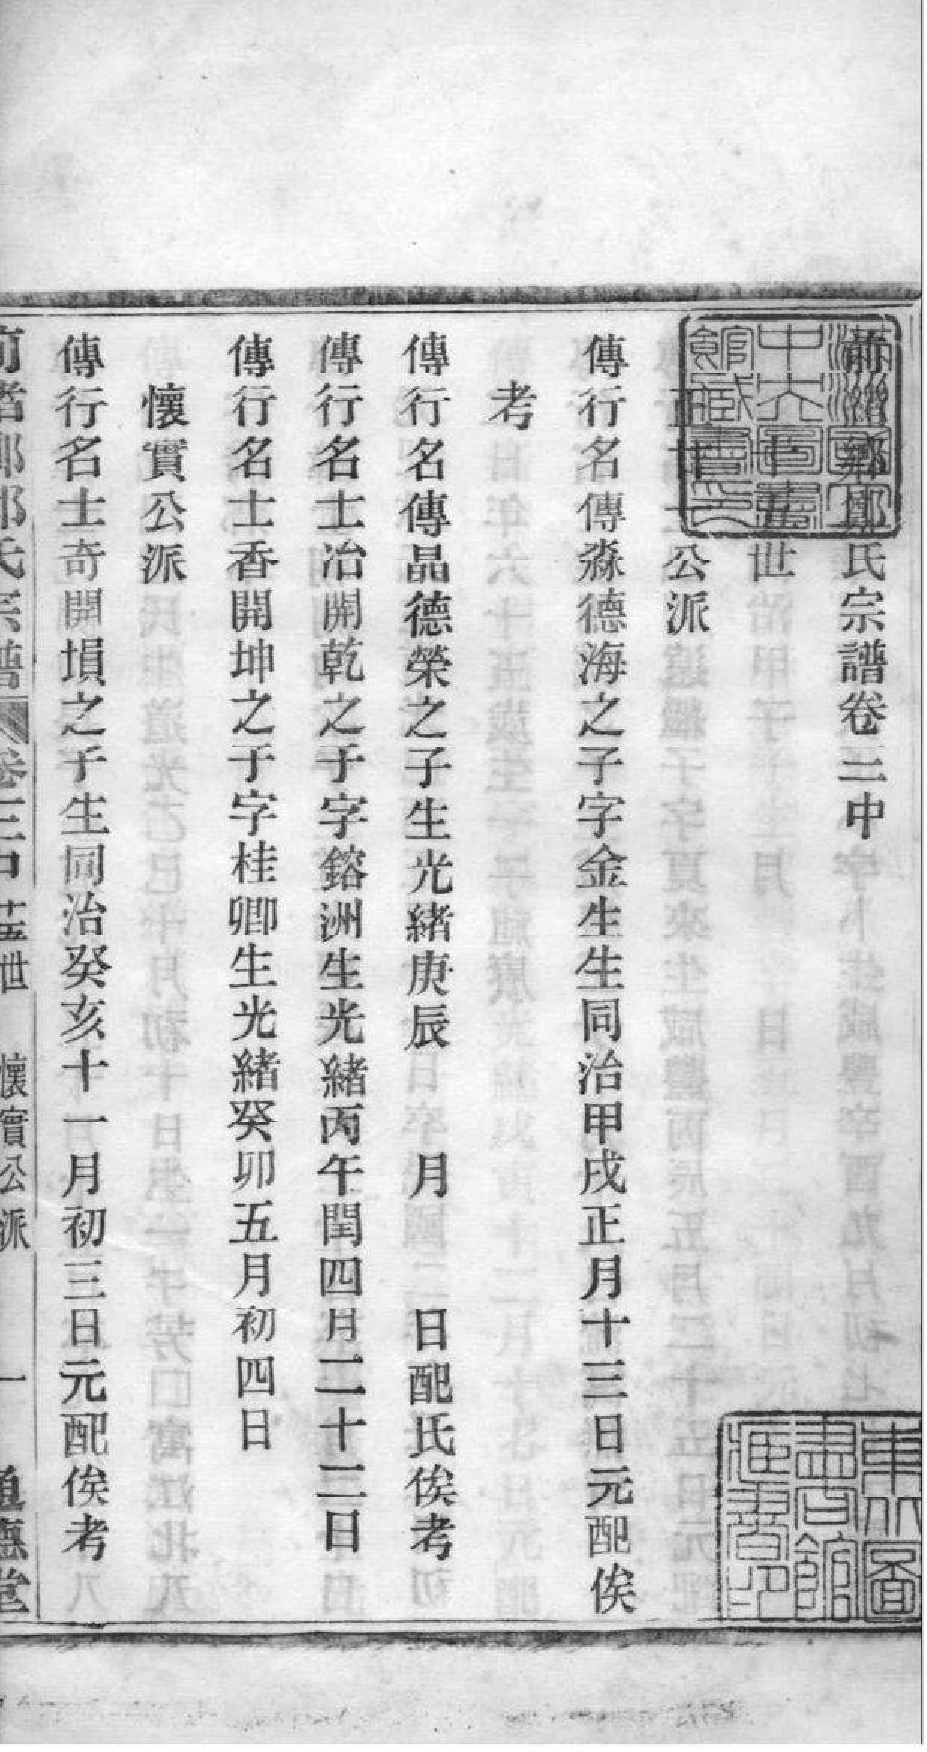 氏宗譜卷三中
五世
公派
傳行名傳淼德海之子字金生生同治甲戌正月十三日元配俟
考
傳行名傳晶德榮之子生光緒庚辰　月　日配氏俟考
傳行名士冶開乾之子字鎔洲生光緒丙午閏四月二十二日
傳行名士香開坤之子字桂卿生光緒癸卯五月初四日
懷實公派
傳行名士奇開塤之子生同治癸亥十一月初三日元配俟考
氏宗譜　卷三中　廿五世　懷實公派　一　堂